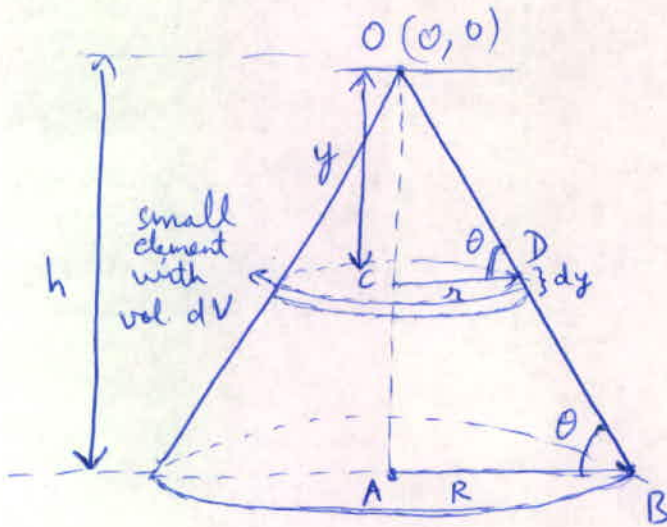 O (0, 0)
y
small
element
with
vol. dV
h
θ
D
C
r
dy
θ
A
R
B